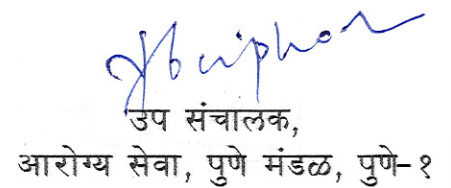 उप संचालक,
आरोग्य सेवा, पुणे मंडळ, पुणे-१